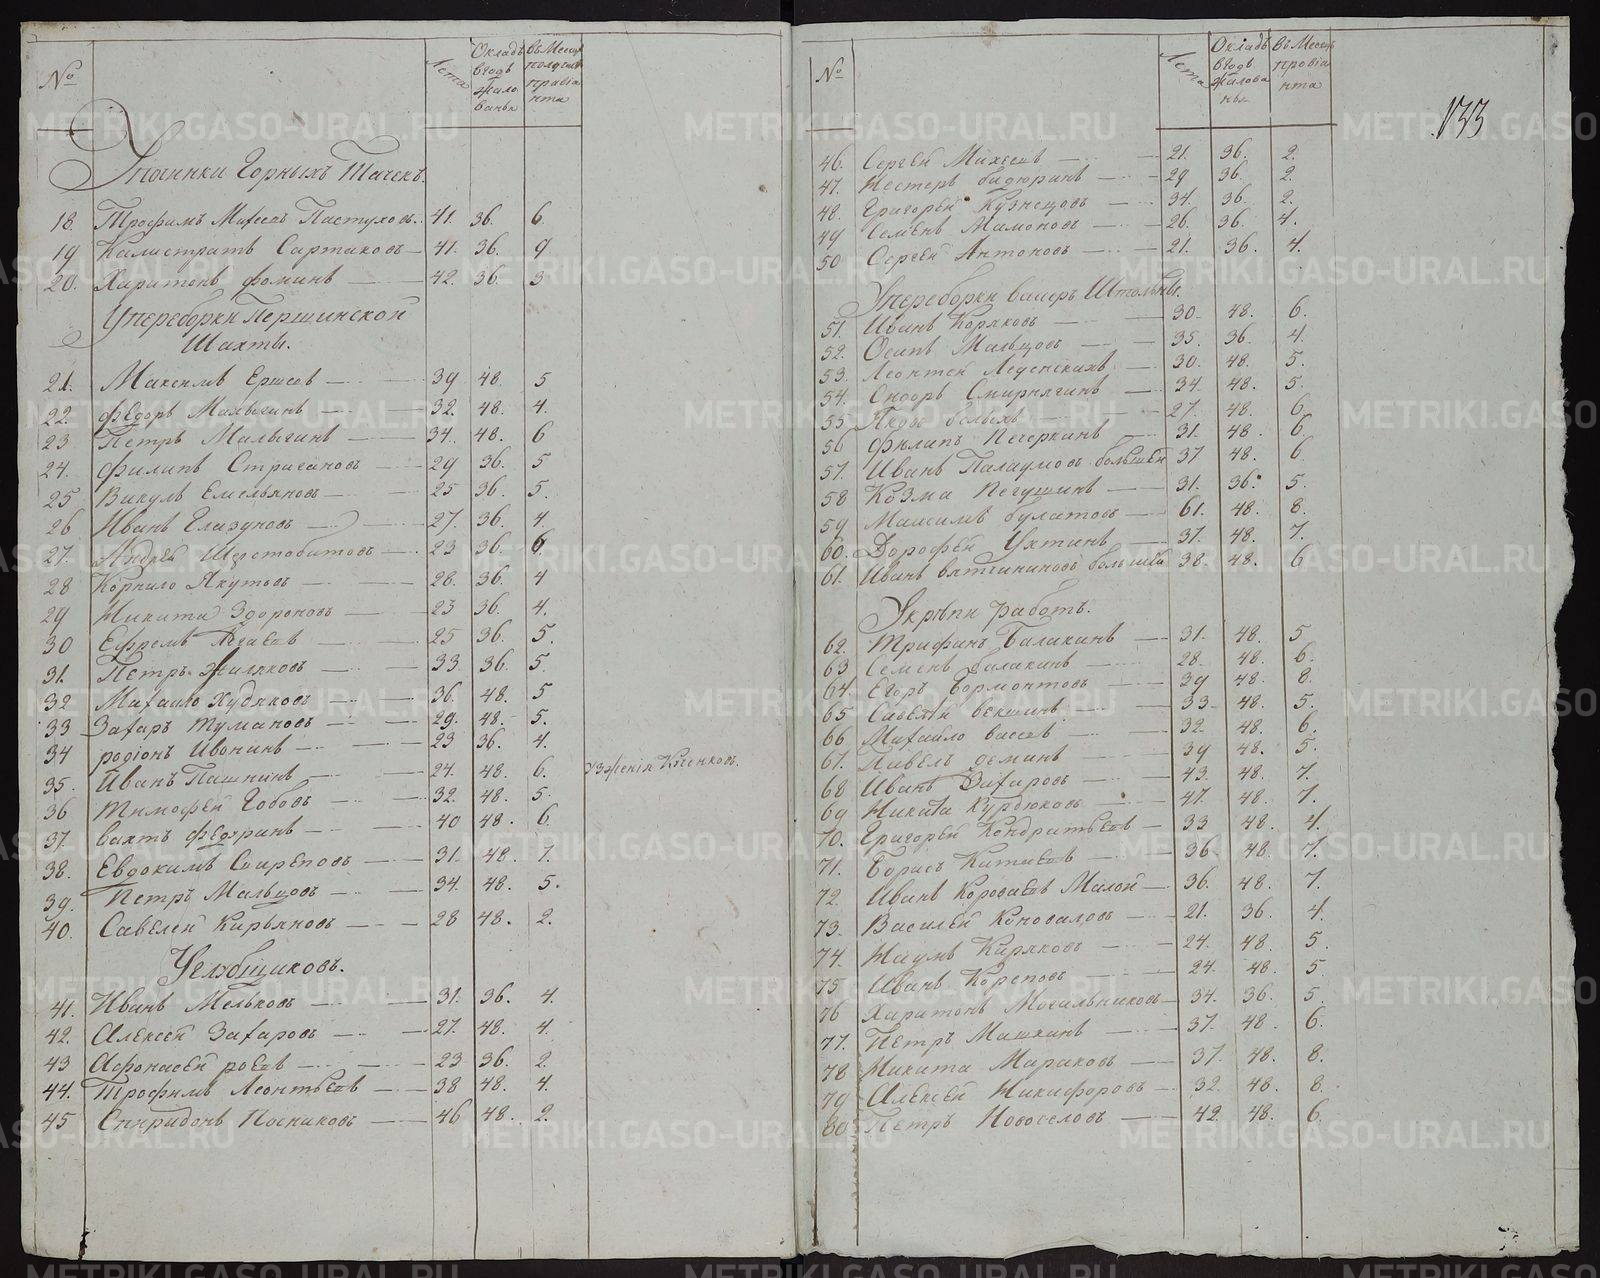 № Лета Окладъ вгодъ жалованья въ Месяцъ получаютъ провианта
Упочинки Горныхъ Тачекъ.
18. Трофимъ Михеевъ Пастуховъ 41. 36. 6.
19 Калистратъ Сартаковъ 41. 36. 9
20. Харитонъ фоминъ 42. 36. 3
Упереборки Першинской
Шахты.
21. Максимъ Ершовъ 39 48. 5
22. федоръ Малыгинъ 32. 48. 4.
23 Петръ Малыгинъ 34. 48. 6
24. филипъ Стригановъ 29 36. 5
25 Викулъ Емельяновъ 25 36. 5.
26 Иванъ Глазуновъ 27. 36. 4.
27. Андрей Шерстобитовъ 23 36. 6.
28 Корнило Якутовъ 28. 36. 4
29 Никита Здорововъ 23 36. 4.
30 Ефремъ Агаевъ 25 36. 5.
31. Петръ Жиляковъ 33. 36. 5.
32 Михайло Худяковъ 36. 48. 5
33 Захаръ Тумановъ 29. 48. 5.
34 родіонъ Ивонинъ 23 36. 4.
35. Иванъ Пашнинъ 24. 48. 6.
36 Тимофей Гобовъ 32. 48. 5.
37. вахтъ федоринъ 40 48. 6.
38. Евдокимъ Свиреповъ 31. 48. 7.
39. Петръ Мальцовъ 34. 48. 5.
40. Савелей Кирьяновъ 28 48. 2.
Углубщиковъ.
41. Иванъ Мельковъ 31. 36. 4.
42. Алексей Захаровъ 27. 48. 4.
43 Афонасей роевъ 23 36. 2.
44. Трофимъ Леонтьевъ 38 48. 4.
45 Спиридонъ Посниковъ 46 48. 2.
№ Лета Окладъ вгодъ жалованья въ Месяцъ провианта
133
46. Сергей Михеевъ 21. 36. 2.
47. Нестеръ бидюринъ 29 36. 2.
48. Григорей Кузнецовъ 34. 36. 2.
49 Семенъ Мамоновъ 26. 36. 4.
50 Сергей Антоновъ 21. 36. 4.
Упереборки вассеръ Штольны.
51. Иванъ Коряковъ 30. 48. 6.
52. Осипъ Мальцовъ 35. 36. 4.
53. Леонтей Леденскихъ 30. 48. 5.
54. Сидоръ Смирнягинъ 34. 48. 5.
55 Яковъ белыхъ 27. 48. 6.
56 Филипъ Печеркинъ 31. 48. 6.
57. Иванъ Палаумовъ большей 37 48. 6.
58 Козма Печушинъ 31. 36. 5.
59 Максимъ булатовъ 61. 48. 8.
60. Дорофей Ухтинъ 37. 48. 7.
61. Иванъ вятчининовъ большей 38. 48. 6
Укрепи работъ.
62. Трифанъ Балакинъ 31. 48. 5
63 Семенъ балакинъ 28. 48. 6.
64. Егоръ Бормонтовъ 39 48. 8.
65 Савелей векшинъ 33. 48. 5.
66 Михайло васевъ 32. 48. 6.
67. Павелъ деминъ 39 48. 5.
68 Иванъ Захаровъ 43. 48. 7.
69 Никита Курдюковъ 47. 48. 7.
70. Григорей Кондратьевъ 33 48. 4.
71. Борисъ Китаевъ 36 48. 7.
72. Иванъ Короваевъ Малой 36. 48. 7.
73. Василей Коноваловъ 21. 36. 4.
74. Наумъ Киряковъ 24. 48. 5.
75 Иванъ Кореповъ 24. 48. 5.
76 Харитонъ Мочальниковъ 34. 36. 5.
77. Петръ Машкинъ 37. 48. 6.
78 Никита Мараковъ 37. 48. 8.
79 Алексей Никифоровъ 32. 48. 8.
80 Петръ Новоселовъ 42. 48. 6.
METRIKI.GASO-URAL.RU